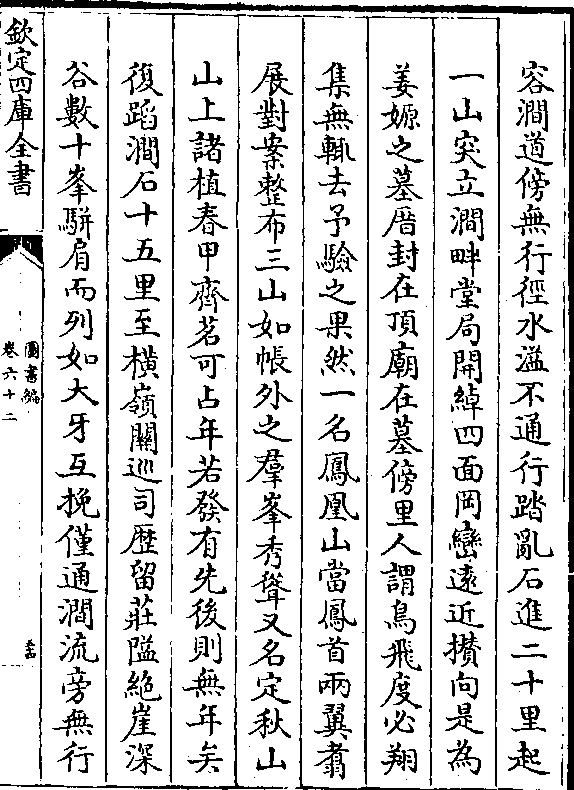 容澗道傍無行徑水溢不通行踏亂石進二十里起
一山突立澗畔堂局開綽四面岡巒遠近攅向是為
姜嫄之墓厝封在頂廟在墓傍里人謂鳥飛度必翔
集無輒去予驗之果然一名鳳凰山當鳳首兩翼翥
展對案整布三山如帳外之羣峯秀聳又名定秋山
山上諸植春甲齊茗可占年若發有先後則無年矣
復蹈澗石十五里至横嶺關巡司歴留莊隘絶崖深
谷數十峯駢肩而列如大牙互挽僅通澗流旁無行
欽定四庫全書
圖書編
卷六十二